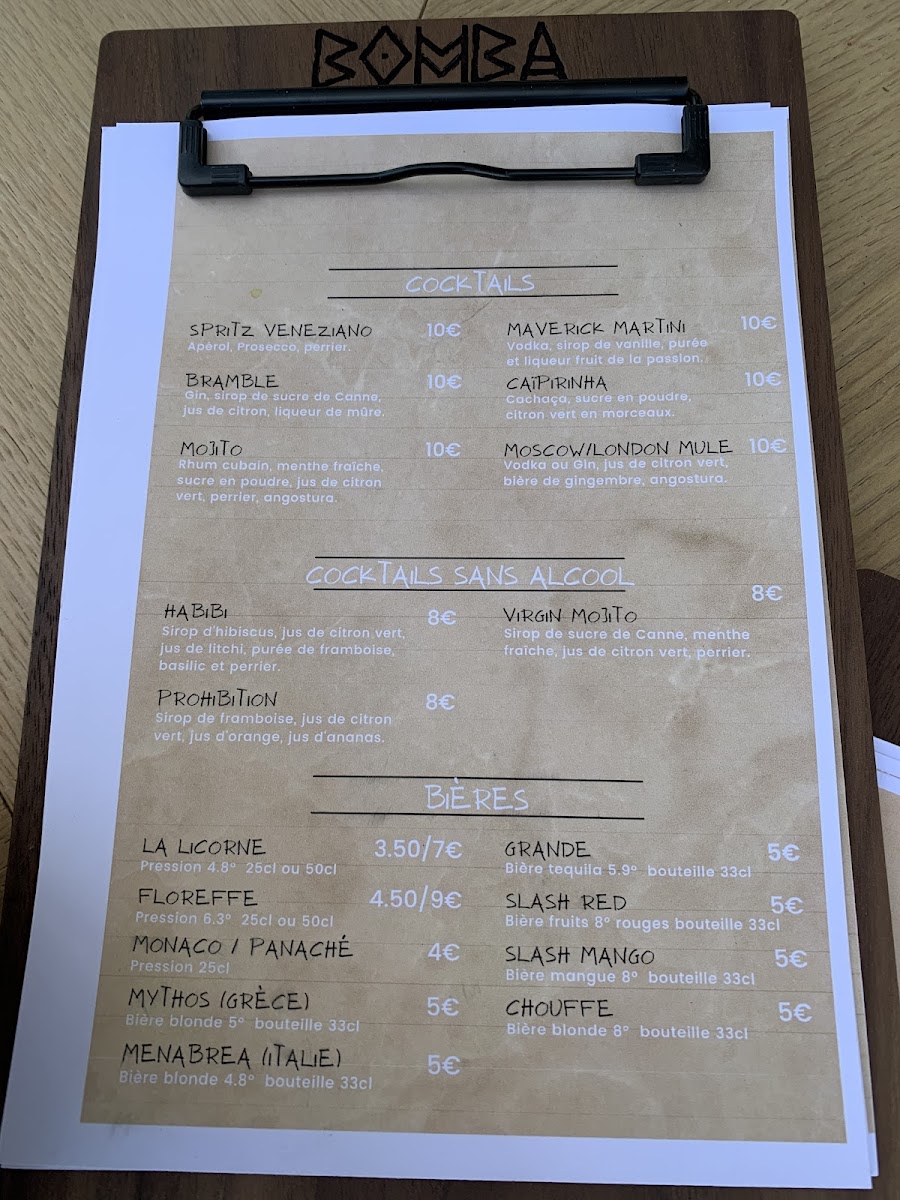 BOMBA
COCKTAILS
SPRITZ VENEZIANO 10€
Apérol, Prosecco, perrier.
BRAMBLE 10€
Gin, sirop de sucre de Canne,
jus de citron, liqueur de mûre.
MOJITO 10€
Rhum cubain, menthe fraîche,
sucre en poudre, jus de citron
vert, perrier, angostura.
MAVERICK MARTINI 10€
Vodka, sirop de vanille, purée
et liqueur fruit de la passion.
CAÏPIRINHA 10€
Cachaça, sucre en poudre,
citron vert en morceaux.
MOSCOW/LONDON MULE 10€
Vodka ou Gin, jus de citron vert,
bière de gingembre, angostura.
COCKTAILS SANS ALCOOL
HABIBI 8€
Sirop d'hibiscus, jus de citron vert,
jus de litchi, purée de framboise,
basilic et perrier.
PROHIBITION 8€
Sirop de framboise, jus de citron
vert, jus d'orange, jus d'ananas.
VIRGIN MOJITO 8€
Sirop de sucre de Canne, menthe
fraîche, jus de citron vert, perrier.
BIÈRES
LA LICORNE 3.50/7€
Pression 4.8° 25cl ou 50cl
FLOREFFE 4.50/9€
Pression 6.3° 25cl ou 50cl
MONACO / PANACHÉ 4€
Pression 25cl
MYTHOS (GRÈCE) 5€
Bière blonde 5° bouteille 33cl
MENABREA (ITALIE) 5€
Bière blonde 4.8° bouteille 33cl
GRANDE 5€
Bière tequila 5.9° bouteille 33cl
SLASH RED 5€
Bière fruits 8° rouges bouteille 33cl
SLASH MANGO 5€
Bière mangue 8° bouteille 33cl
CHOUFFE 5€
Bière blonde 8° bouteille 33cl